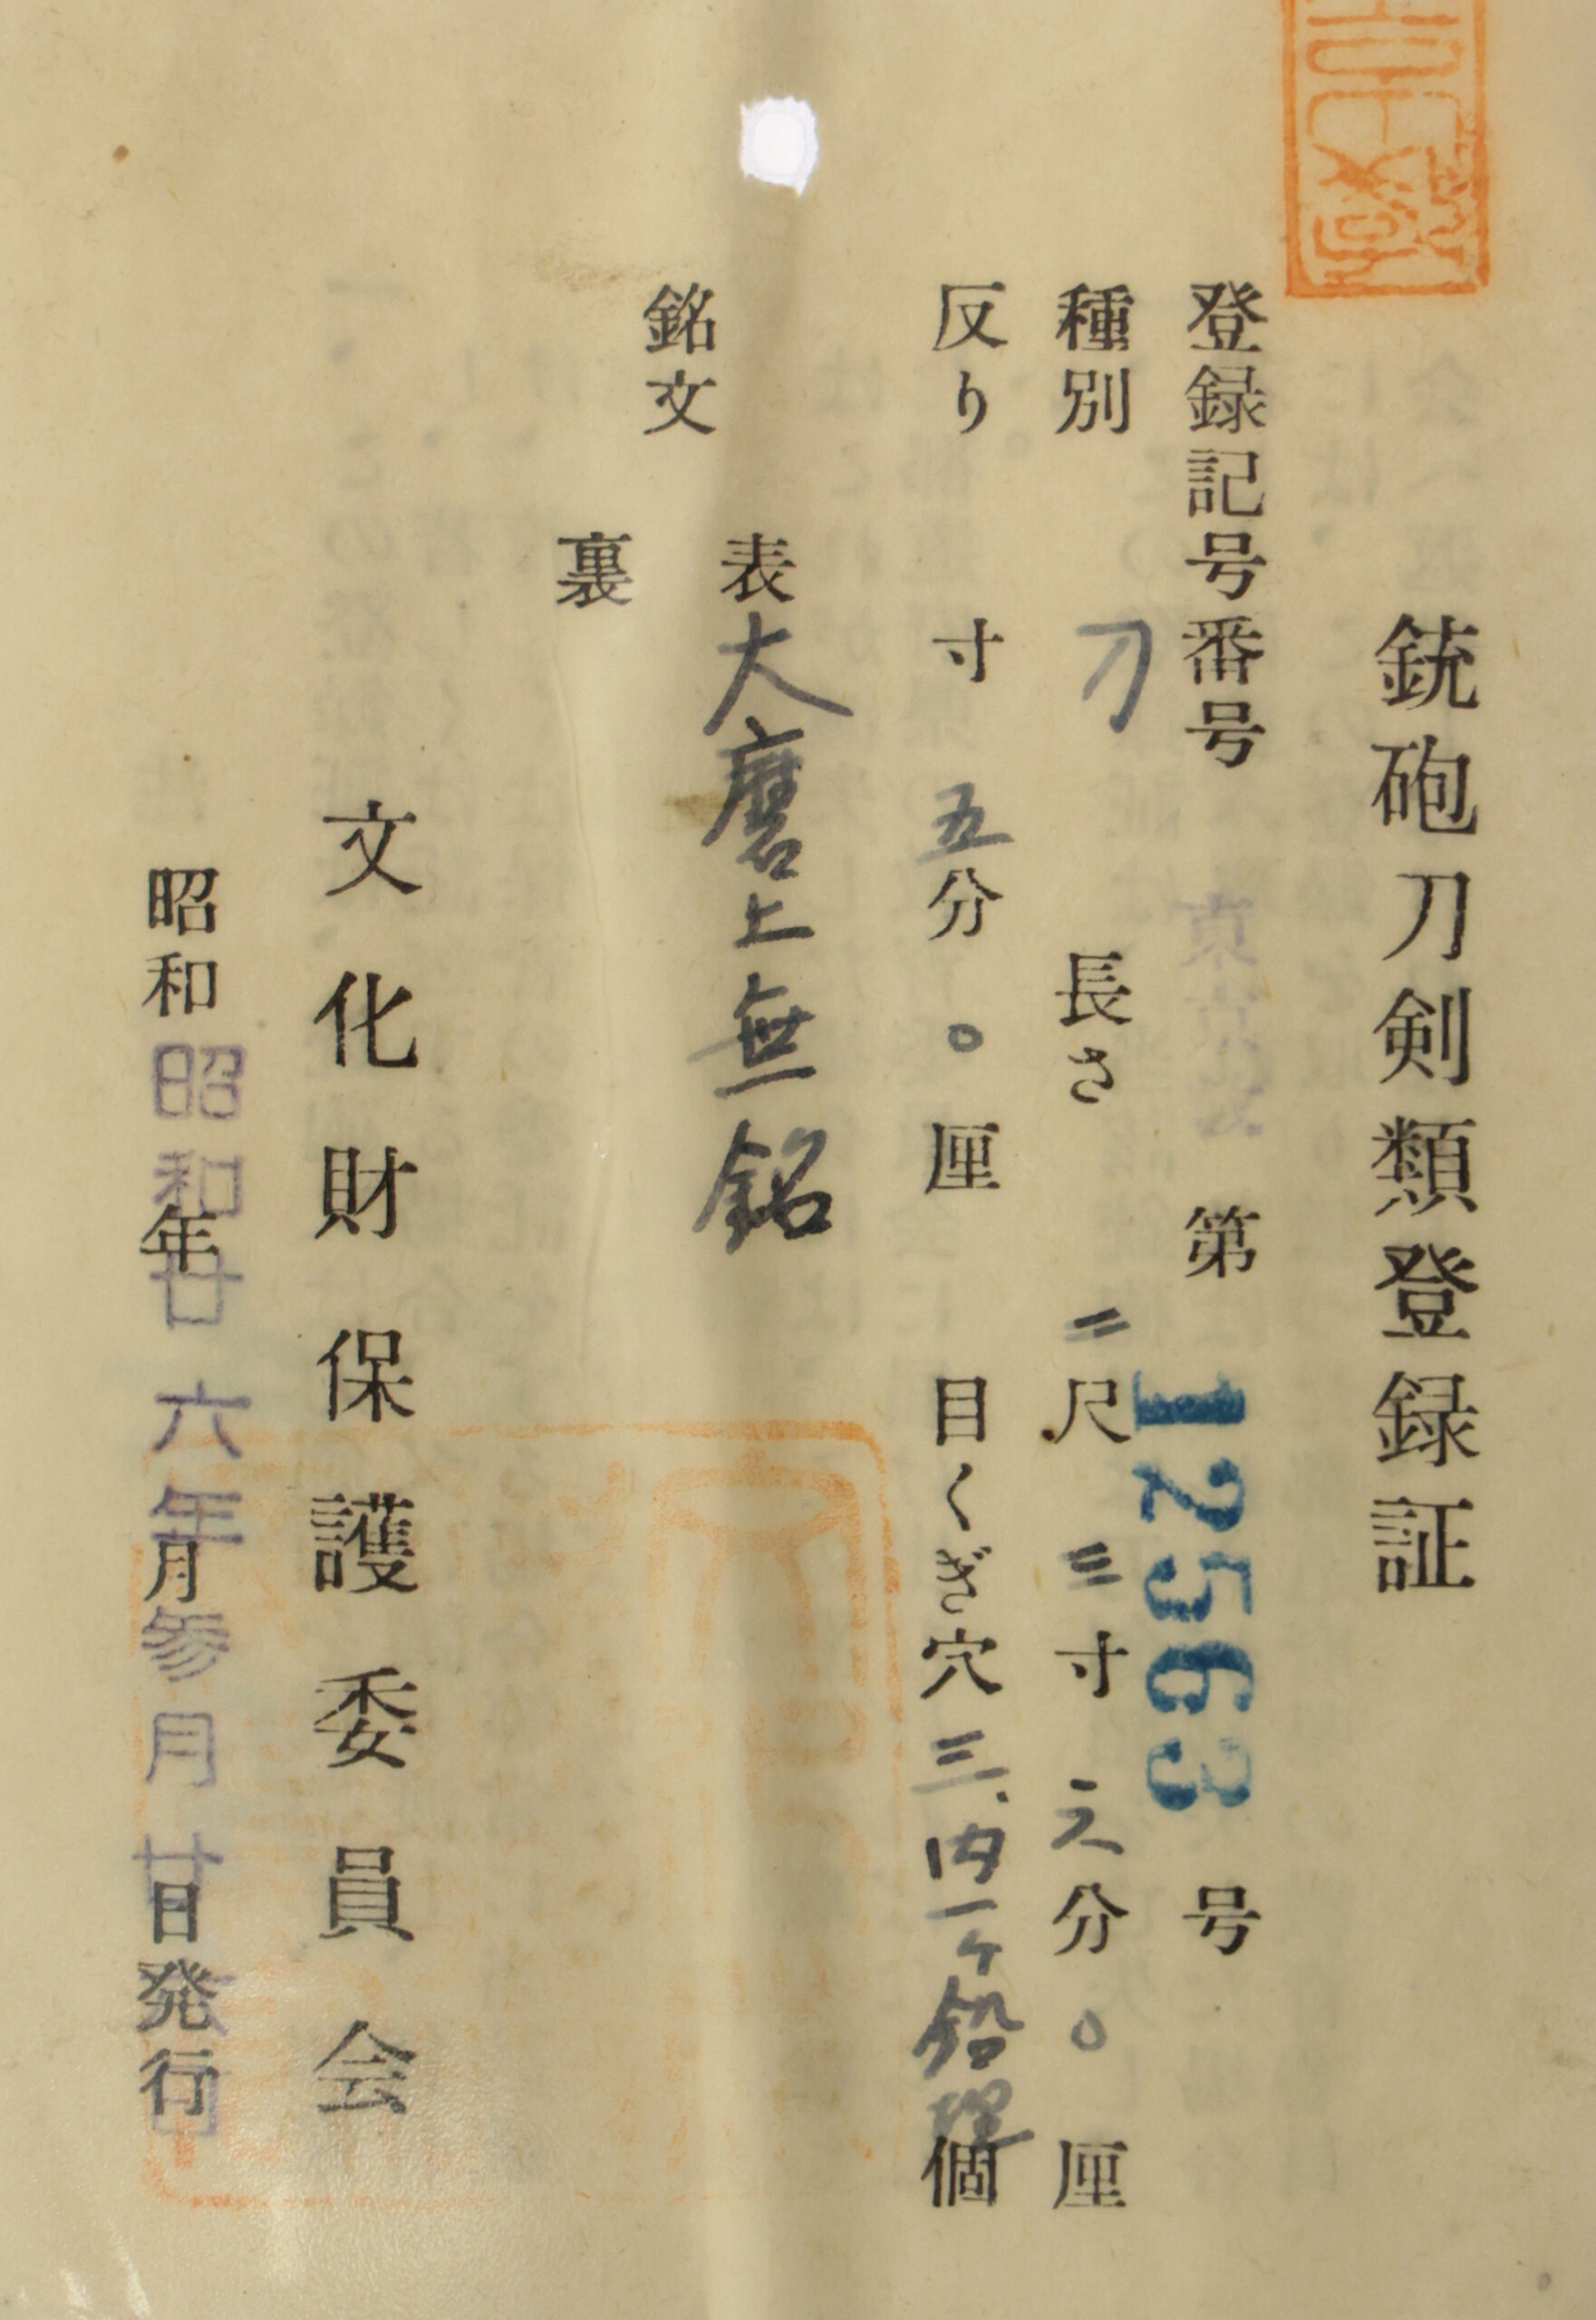 銃砲刀剣類登録証
登録記号番号 東京 第12563号
種別 刀 長さ 二尺三寸 分〇厘
反り 寸五分〇厘 目くぎ穴三、内一ケ鉛埋個
銘文
表 大磨上無銘
裏
文化財保護委員会
昭和 年 月 日発行
昭和廿六年参月廿日